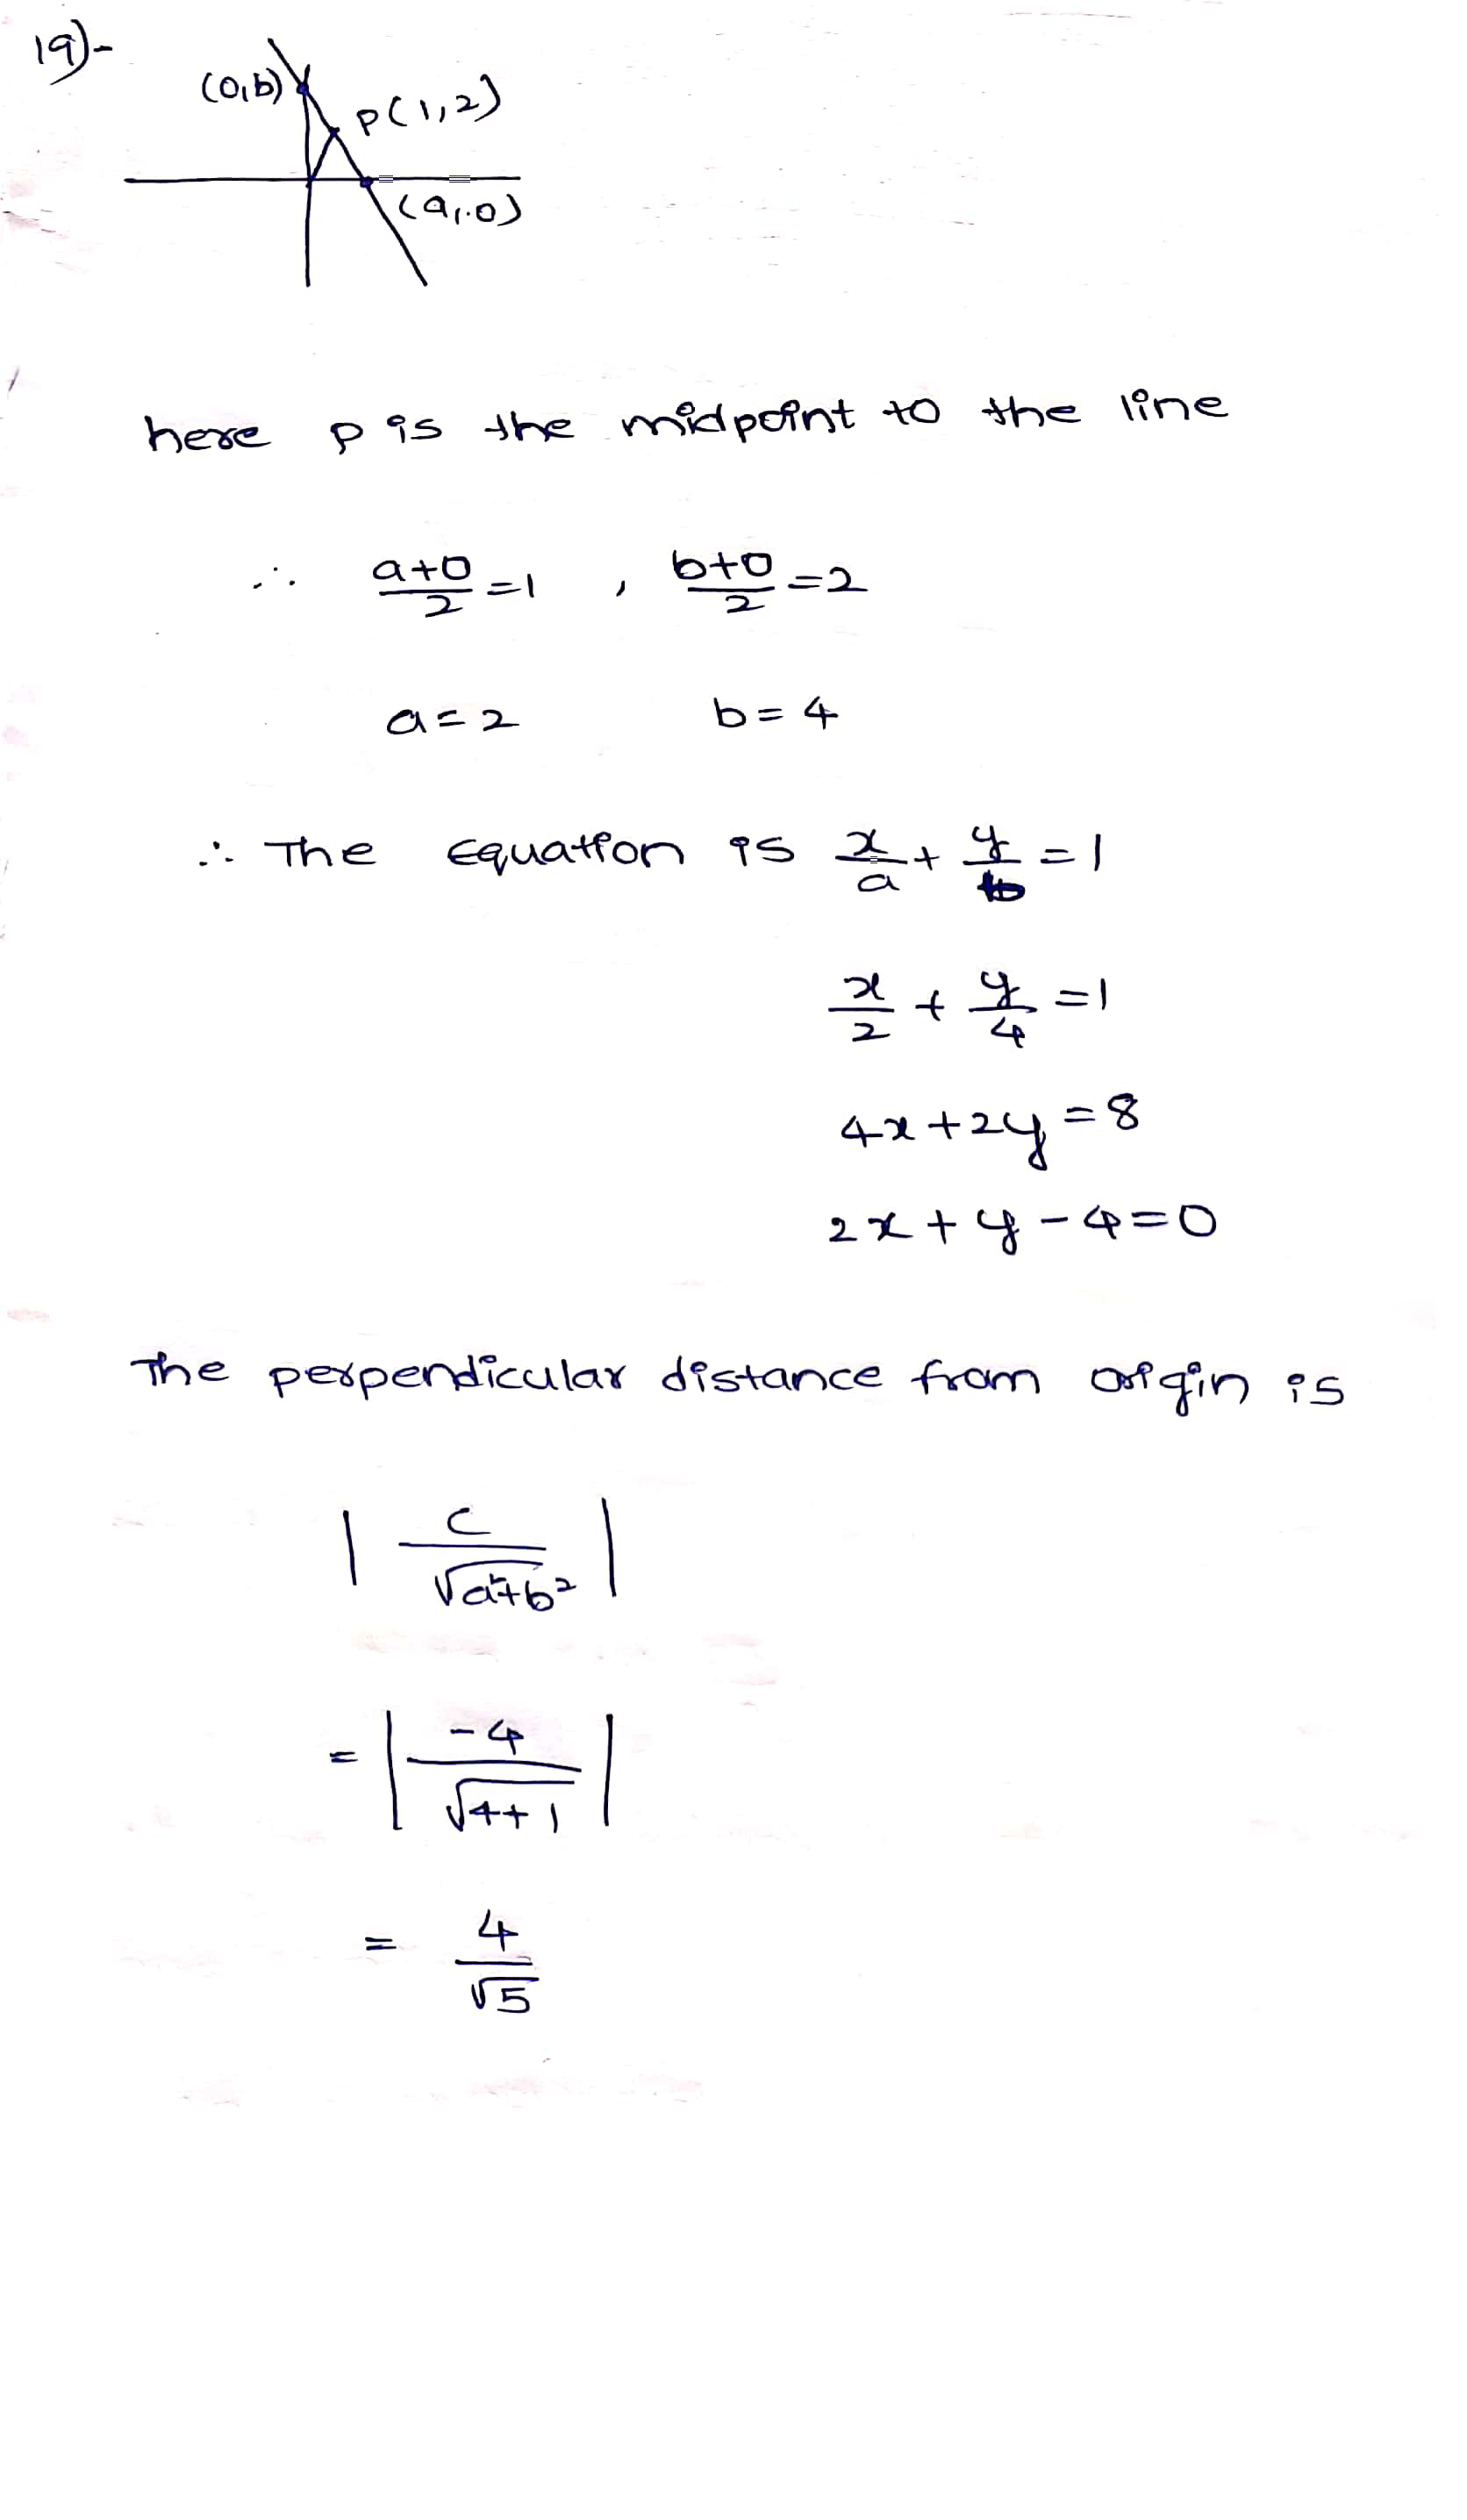 19)-
(0,b)
P(1,2)
(a,0)
here p is the midpoint to the line
∴ a+0/2 =1 , b+0/2 =2
a=2 b=4
∴ The equation is x/a + y/b =1
x/2 + y/4 =1
4x+2y=8
2x+y-4=0
The perpendicular distance from origin is
| c/√a²+b² |
= | -4/√4+1 |
= 4/√5